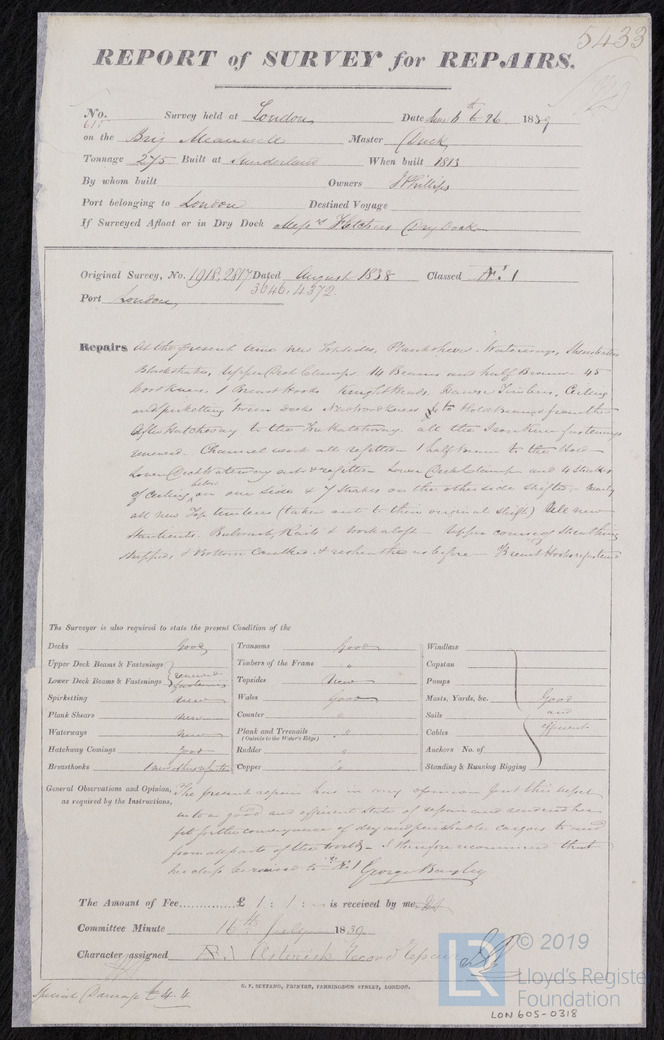 5433
REPORT of SURVEY for REPAIRS.
No. 615 Survey held at London Date to 26 1839
on the Brig Master
Tonnage 275 Built at Sunderland When built 1813
By whom built Owners J Phillips
Port belonging to London Destined Voyage
If Surveyed Afloat or in Dry Dock Mess^rs Fletchers Dry Dock
Original Survey, No. 1918, 2817 Dated August 1838 Classed Æ 1
3646. 4372
Port London
Repairs At the present time New Topsides, Plank sheers, Waterways,
Blackstrakes, Upper Deck Clamps 14 Beams and half Beams 45
Wood Knees. 1 Breast Hooks Knight Heads. Hawse Timbers, Ceiling
and spirketting Tween decks New wood knees to Hold Beams from the
After Hatchway to the Fore Hatchway. all the Iron Knee fastenings
renewed. Channel work all refitted 1 half Beam to the Hold
Lower Deck Waterway out & refitted Lower Deck Clamp and 4 Strakes
of Ceiling below on one side & 7 strakes on the other side shifted. nearly
all new Top timbers (taken out to their original shift) All new
Stantients. Bulwark, Rails & work aloft Upper course of Sheathing
stripped, & Bottom Caulked. & as before Breast Hooks refastened
The Surveyor is also required to state the present Condition of the
Decks Good
Upper Deck Beams & Fastenings renewed
Lower Deck Beams & Fastenings fastenings
Spirketting new
Plank Shears new
Waterways New
Hatchway Comings Good
Breasthooks 1 new
Transoms Good
Timbers of the Frame "
Topsides New
Wales Good
Counter "
Plank and Treenails "
(Outside to the Water's Edge)
Rudder "
Copper "
Windlass
Capstan
Pumps
Masts, Yards, &c. Good
Sails and
Cables efficient
Anchors No. of
Standing & Running Rigging
General Observations and Opinion, The present repairs has in my opinion put this vessel
as required by the Instructions, into a good and efficient state of repair and renders her
fit for the conveyance of dry and perishable cargoes to and
from all parts of the World. I therefore recommend that
her class be raised to Æ 1 George Bayley
The Amount of Fee £ 1 : 1 : is received by me
Committee Minute 16th July 1839
Character assigned Æ 1 Asterisk Record Repairs
G. F. SEYFANG, PRINTER, FARRINGDON STREET, LONDON.
Special Damage £ 4.4
LR
© 2019
Lloyd's Register
Foundation
LON 605-0318